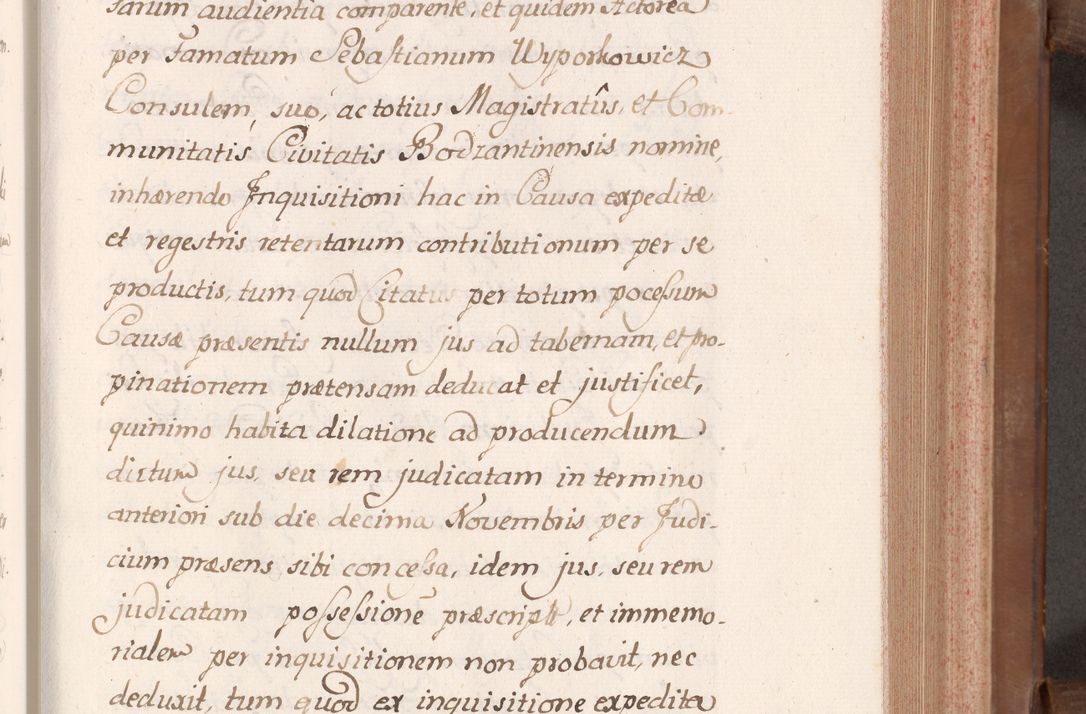 sarum audientia comparente, et quidem Actorea
per Famatum Sebastianum Wyporkowicz
Consulem, suo, ac totius Magistratûs, et Com-
munitatis Civitatis Bodzantinensis nomine,
inhærendo Inquisitioni hac in Causa expeditæ
et regestris retentarum contributionum per se
productis, tum quod Citatus per totum pocessum
Causæ præsentis nullum jus ad tabernam, et pro-
pinationem prætensam deducat et justificet,
quinimo habita dilatione ad producendum
dictum jus, seu rem judicatam in termino
anteriori sub die decima Novembris per Judi-
cium præsens sibi concessa, idem jus, seu rem
judicatam possessione præscript, et immemo-
rialem per inquisitionem non probavit, nec
deduxit, tum quod ex inquisitione expedita